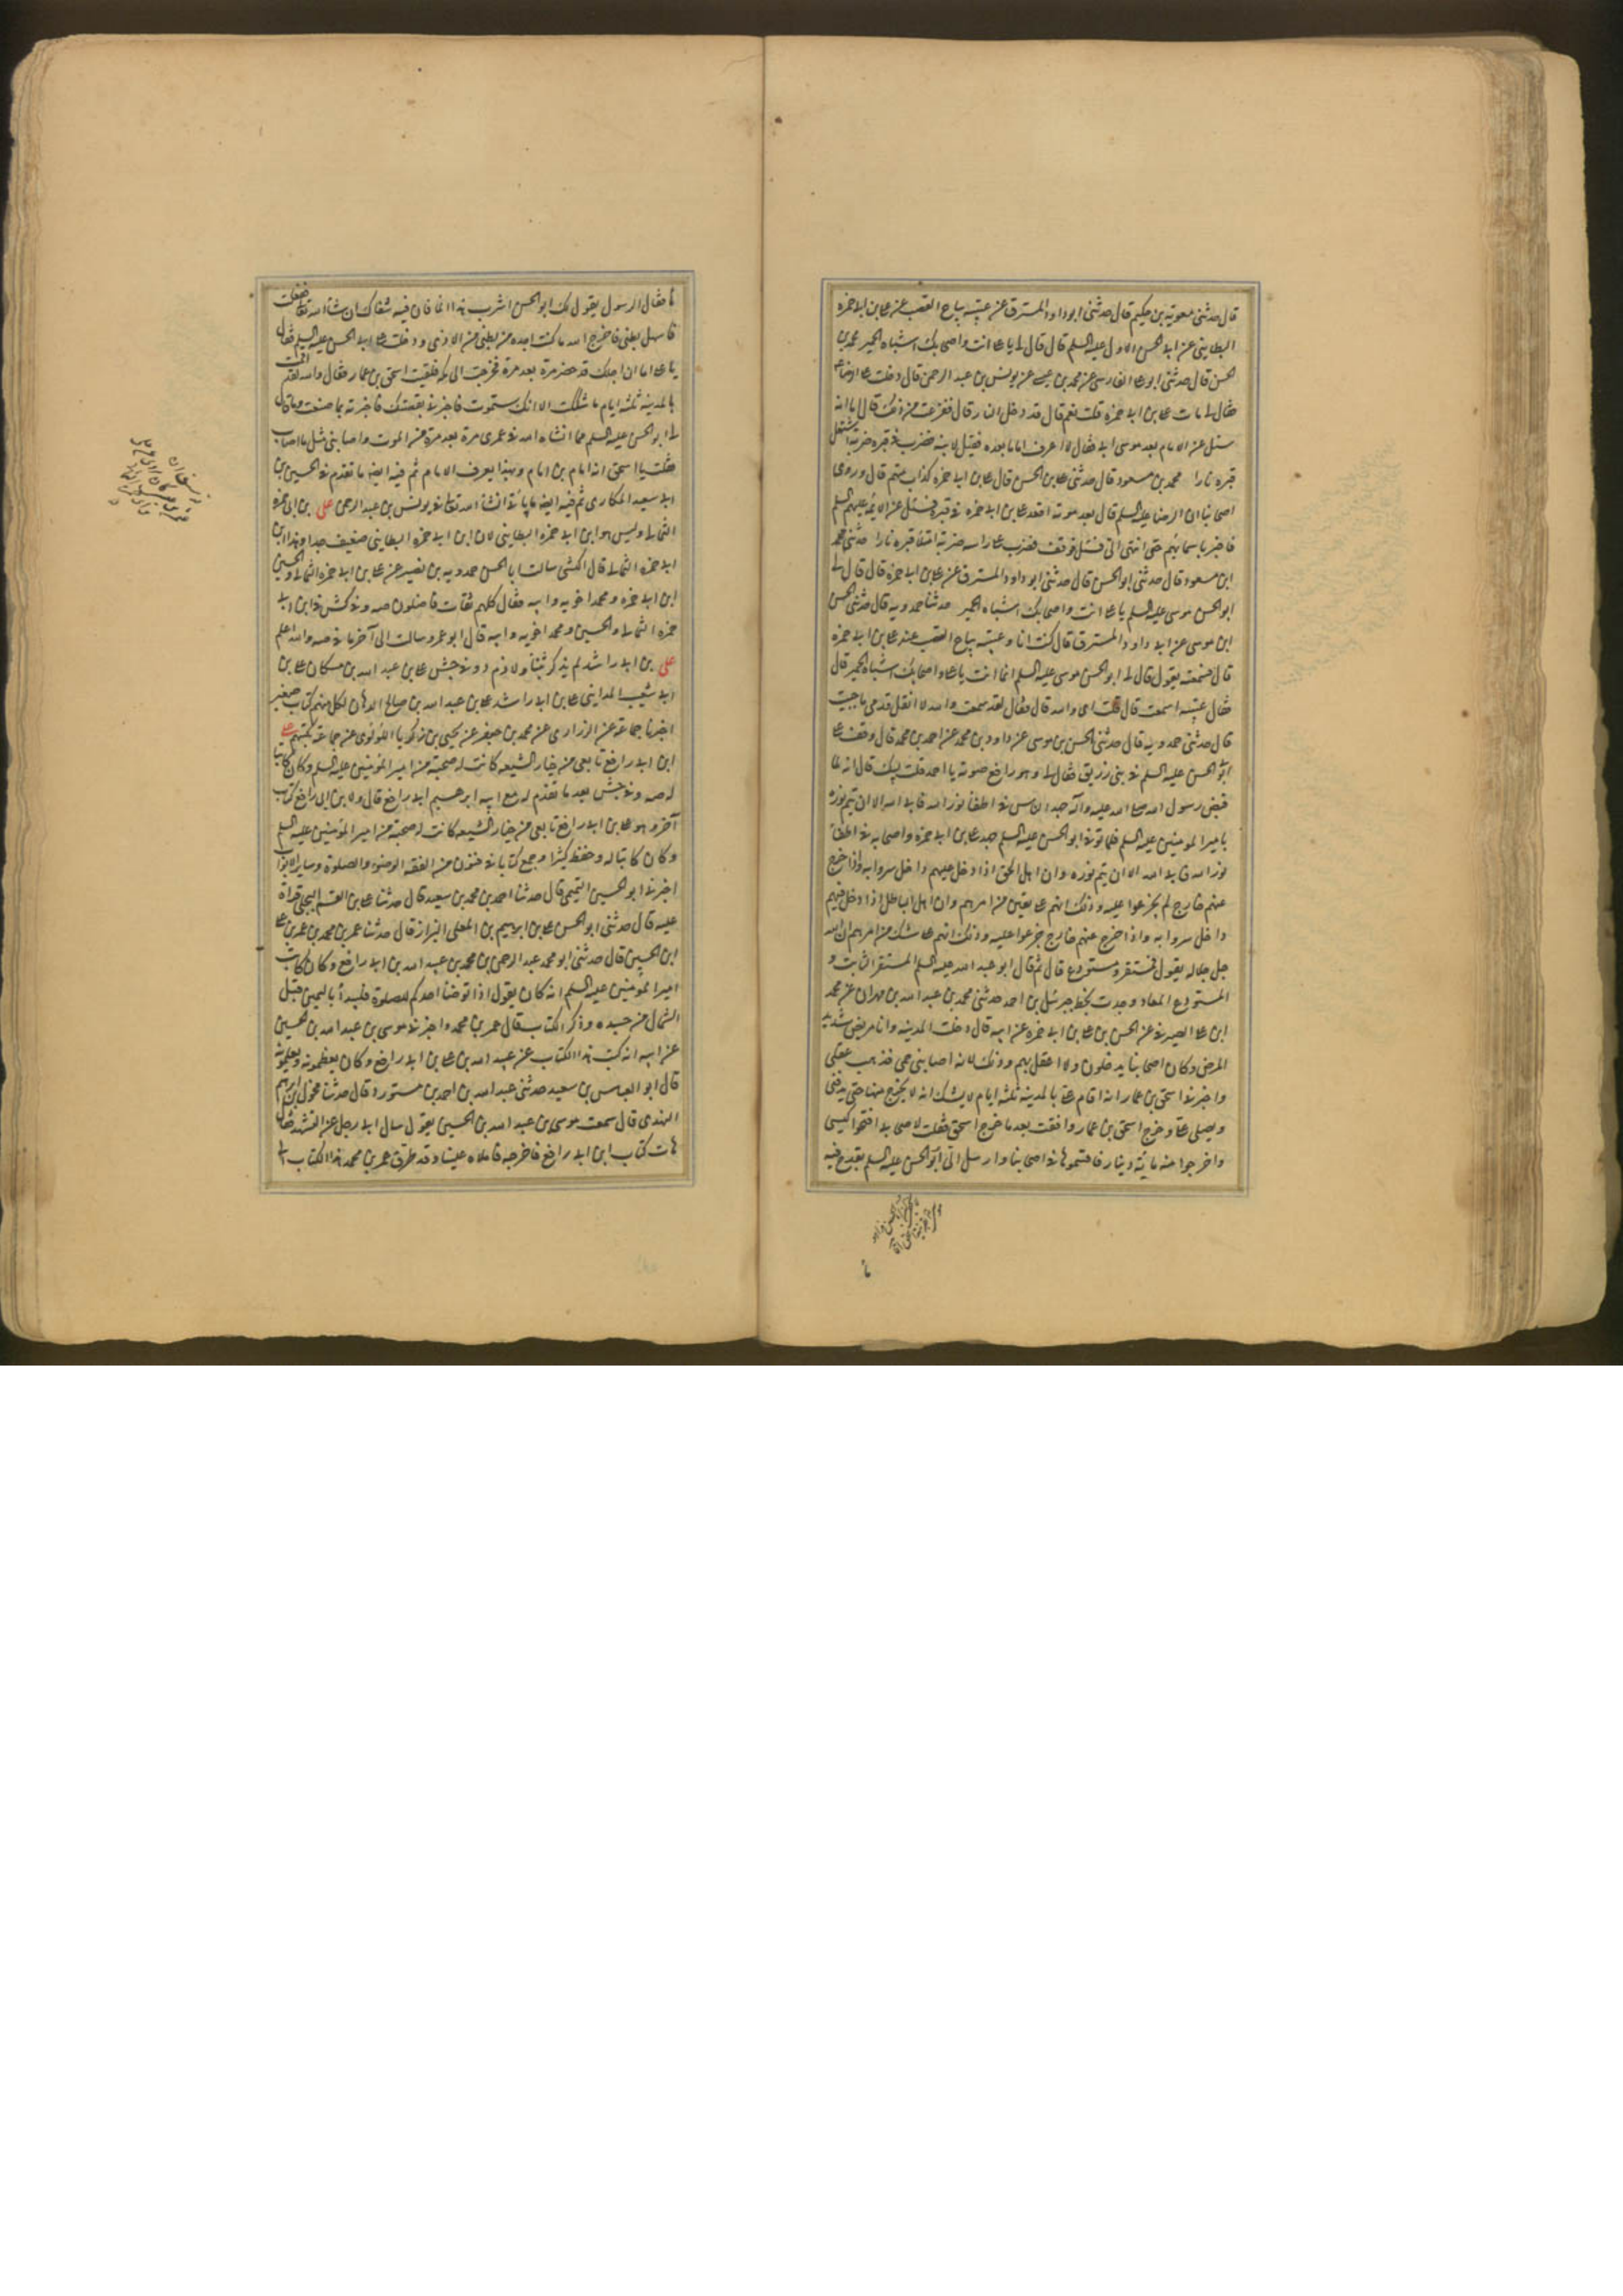 قال حدثنى معوية بن حكيم قال حدثنى ابو داود المسترق عن عتبة بياع القصب عن على بن ابى حمزه
البطاينى عن ابى الحسن الاول عليه السلم قال قال لى يا على انت واصحابك اشباه الحمير محمد بن
الحسن قال حدثنى ابو على الفارسى عن محمد بن عيسى عن يونس بن عبد الرحمن قال دخلت على الرضا ع
فقال لى مات على بن ابى حمزه قلت نعم قال قد دخل النار قال ففزعت من ذلك قال اما انه
سئل عن الامام بعد موسى ابى فقال لا اعرف اماما بعده فقيل لا فضرب فى قبره ضربة اشتعل
قبره نارا محمد بن مسعود قال حدثنى على بن الحسن قال على بن ابى حمزه كذاب متهم قال وروى
اصحابنا ان الرضا عليه السلم قال بعد موته اقعد على بن ابى حمزه فى قبره فسئل عن الائمة عليهم السلم
فاخبر باسمائهم حتى انتهى الى فسئل فوقف فضرب على راسه ضربة امتلأ قبره نارا حدثنى محمد
ابن مسعود قال حدثنى ابو الحسن قال حدثنى ابو داود المسترق عن على بن ابى حمزة قال قال لى
ابو الحسن موسى عليه السلم يا على انت واصحابك اشباه الحمير حدثنا حمدويه قال حدثنى الحسن
ابن موسى عن ابى داود المسترق قال كنت انا وعتبة بياع القصب عند على بن ابى حمزه
قال فسمعته يقول قال لى ابو الحسن موسى عليه السلم انما انت يا على واصحابك اشباه الحمير قال
فقال عتبه اسمعت قال قلت اى والله قال فقال لقد سمعت والله لا انقل قدمى ما حييت
قال حدثنى حمدويه قال حدثنى الحسن بن موسى عن داود بن محمد عن احمد بن محمد قال وقف على
ابو الحسن عليه السلم فى بنى زريق فقال لى وهو رافع صوته يا احمد قلت لبيك قال انه لما
قبض رسول الله صلى الله عليه وآله جهد الناس فى اطفأ نور الله فابى الله الا ان يتم نوره
بامير المومنين عليه السلم فلما توفى ابو الحسن عليه السلم جهد على بن ابى حمزه واصحابه فى اطفأ
نور الله فابى الله الا ان يتم نوره وان اهل الحق اذا دخل عليهم داخل سروا به واذا خرج
عنهم خارج لم يجزعوا عليه وذلك انهم على يقين من امرهم وان اهل الباطل اذا دخل فيهم
داخل سروا به واذا خرج عنهم خارج جزعوا عليه وذلك انهم على شك من امرهم ان الله
جل جلاله يقول فمستقر ومستودع قال ثم قال ابو عبد الله عليه السلم المستقر الثابت و
المستودع المعاد وجدت بخط جبرئيل بن احمد حدثنى محمد بن عبد الله بن مهران عن محمد
ابن على الصيرفى عن الحسن بن على بن ابى حمزه عن ابيه قال دخلت المدينه وانا مريض شديد
المرض وكان اصحابنا يدخلون ولا اعقل بهم وذلك لانه اصابنى حمى فذهب عقلى
واخبرنى اسحق بن عمار انه اقام على بالمدينه ثلثة ايام لا يشك انه لا يخرج منها حتى يدفننى
ويصلى على وخرج اسحق بن عمار وافقت بعد ما خرج اسحق فقلت لاصحابى افتحوا كيسى
واخرجوا منه مائة دينار فاقسموها فى اصحابنا وارسل الى ابو الحسن عليه السلم بقدح فيه
ما
مأ فقال الرسول يقول لك ابو الحسن اشرب هذا الما فان فيه شفاك ان شأ الله تعالى ففعلت
فاسهل بطنى فاخرج الله ما كنت اجده من بطنى من الاذى ودخلت على ابى الحسن عليه السلم فقال
يا على اما ان اجلك قد حضر مرة بعد مرة فخرجت الى مكه فلقيت اسحق بن عمار فقال والله لقد اقمت
بالمدينه ثلثة ايام ما شككت الا انك ستموت فاخبرنى بقصتك فاخبرته بما صنعت وما قال
لى ابو الحسن عليه السلم مما انشاء الله فى عمرى مرة بعد مرة من الموت واصابنى مثل ما اصاب
فقلت يا اسحق انه امام بن امام وبهذا يعرف الامام ثم فيه ايضا ما تقدم فى الحسين بن
ابى سعيد المكارى ثم فيه ايضا ما يأتى انشأ الله تعالى فى يونس بن عبد الرحمن على بن ابى حمزه
الثمالى وليس هو ابن ابى حمزه البطاينى لان ابن ابى حمزه البطاينى ضعيف جدا وهذا ابن
ابى حمزه الثمالى قال الكشى سالت ابا الحسن حمدويه بن نصير عن على بن ابى حمزه الثمالى والحسين
ابن ابى حمزه ومحمد اخويه وابيه فقال كلهم ثقات فاضلون صه وفى كش فى ابن ابى
حمزه الثمالى والحسين ومحمد اخويه وابيه قال ابو عمرو سالت الى آخر ما فى صه والله اعلم
على بن ابى راشد لم يذكر شيئا ولا ذم دو فى جش على بن عبد الله بن مسكان على بن
ابى شعيب المداينى على بن ابى راشد على بن عبد الله بن صالح الدهان لكل منهم كتاب صغير
اخبرنا جماعة عن الزرارى عن محمد بن جعفر عن يحيى بن زكريا اللؤلؤى عن جماعة بكتبهم على
ابن ابى رافع تابعى من خيار الشيعه كانت له صحبة من امير المؤمنين عليه السلم وكان كاتبا
له صه وفى جش بعد ما تقدم له مع ابيه ابراهيم ابى رافع قال ولابن ابى رافع كتاب
آخر وهو على بن ابى رافع تابعى من خيار الشيعه كانت له صحبة من امير المؤمنين عليه السلم
وكان كاتبا له وحفظ كثيرا وجمع كتابا فى فنون من الفقه الوضوء والصلوة وساير الابواب
اخبرنى ابو الحسين التميمى قال حدثنا احمد بن محمد بن سعيد قال حدثنا على بن القسم البجلى قراة
عليه قال حدثنى ابو الحسن على بن ابراهيم بن المعلى البزاز قال حدثنا عمر بن محمد بن عمر بن على
ابن الحسين قال حدثنى ابو محمد عبد الرحمن بن محمد بن عبيد الله بن ابى رافع وكان كاتب
امير المؤمنين عليه السلم انه كان يقول اذا توضأ احدكم للصلوة فليبدأ باليمين قبل
الشمال من جسده وذكر الكتاب قال عمر بن محمد واخبرنى موسى بن عبد الله بن الحسين
عن ابيه انه كتب هذا الكتاب عن عبيد الله بن على بن ابى رافع وكان يعظمونه ويعلمونه
قال ابو العباس بن سعيد حدثنى عبد الله بن احمد بن مستورد قال حدثنا مخول بن ابراهيم
النهدى قال سمعت موسى بن عبد الله بن الحسين يقول سال ابى رجل عن التشهد فقال
هات كتاب ابن ابى رافع فاخرجه فاملاه علينا وقد طرق عمر بن محمد هذا الكتاب الى